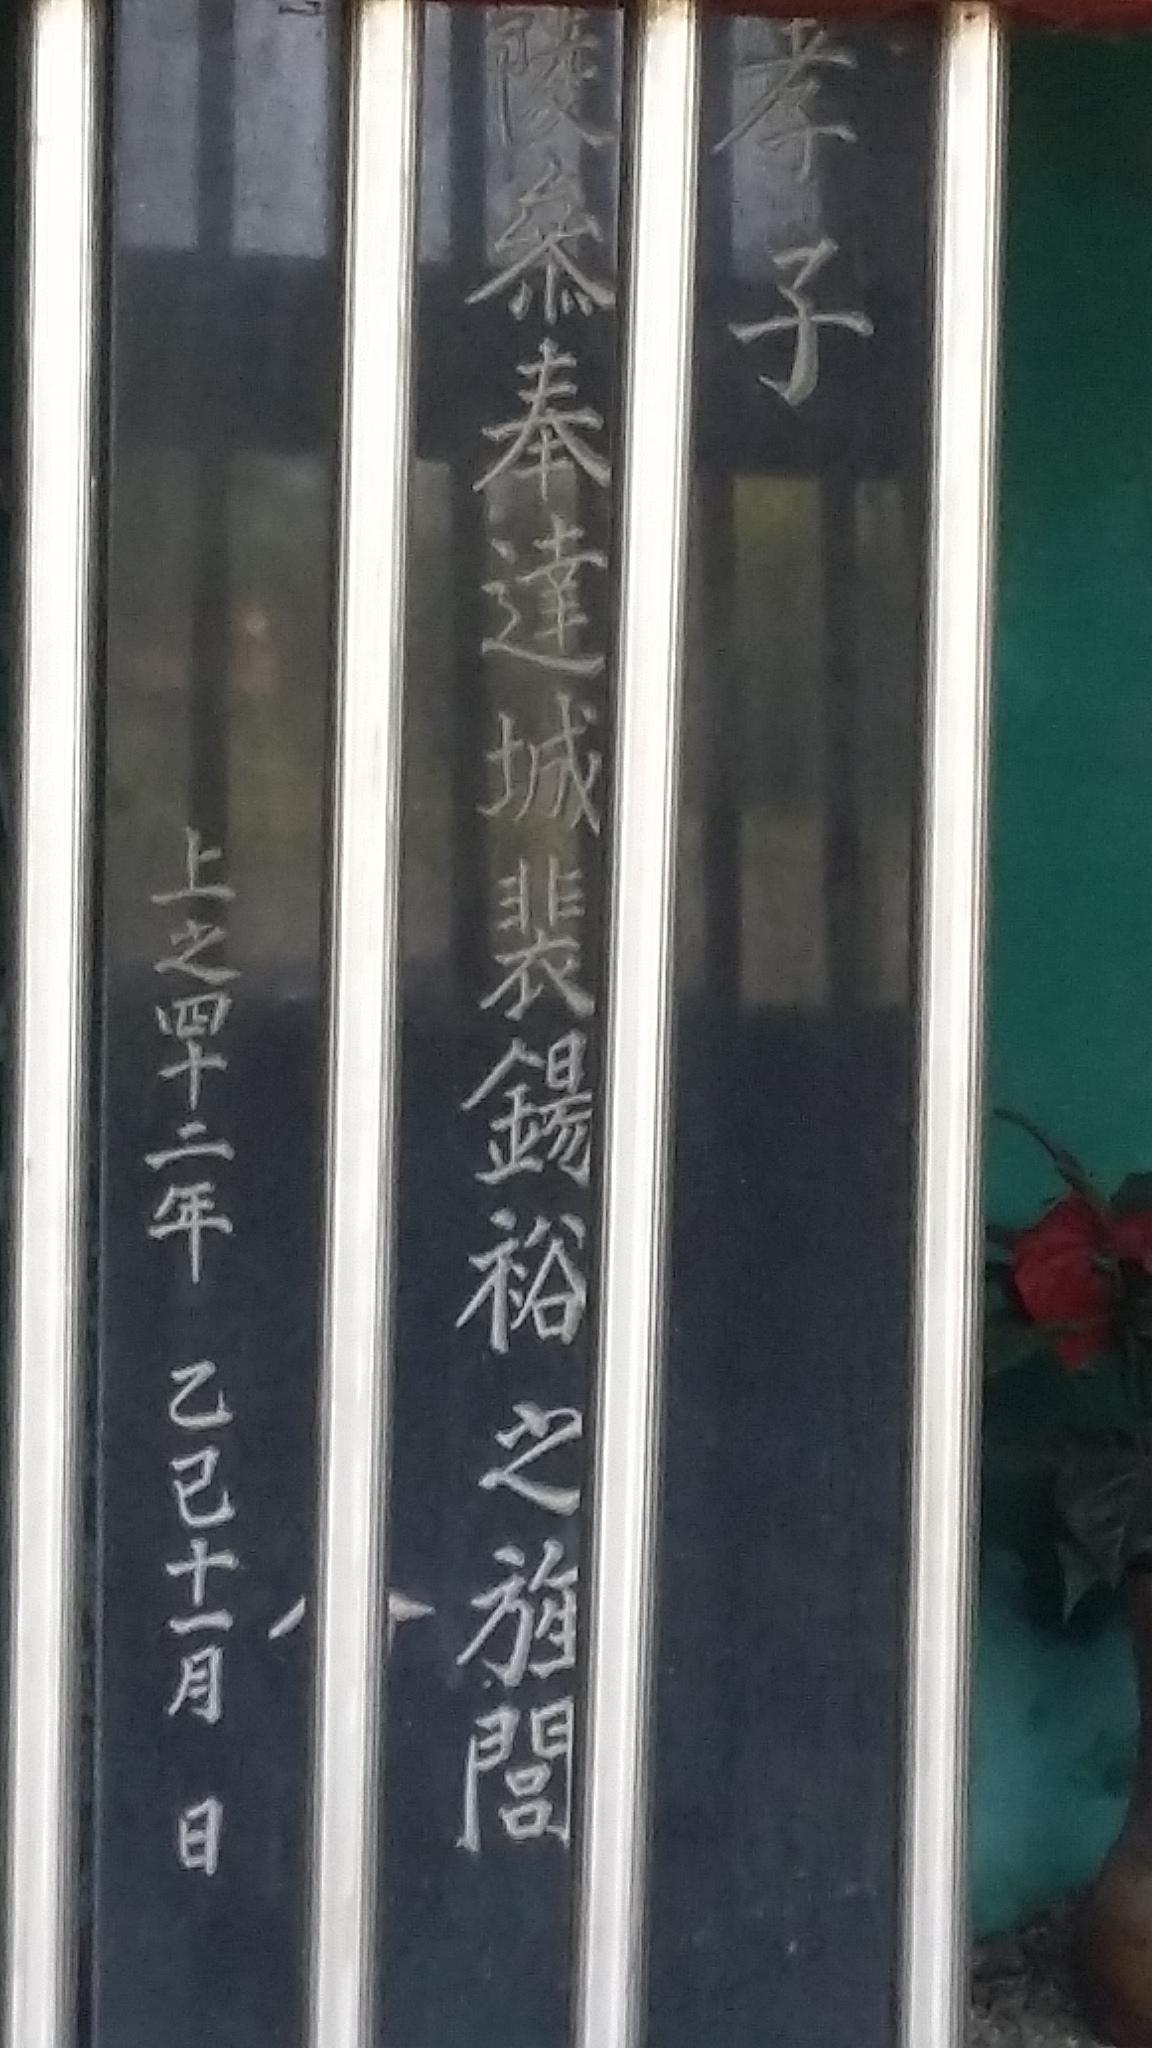 孝子
陵叅奉達城裴錫裕之旌閭
上之四十二年 乙巳十一月 日